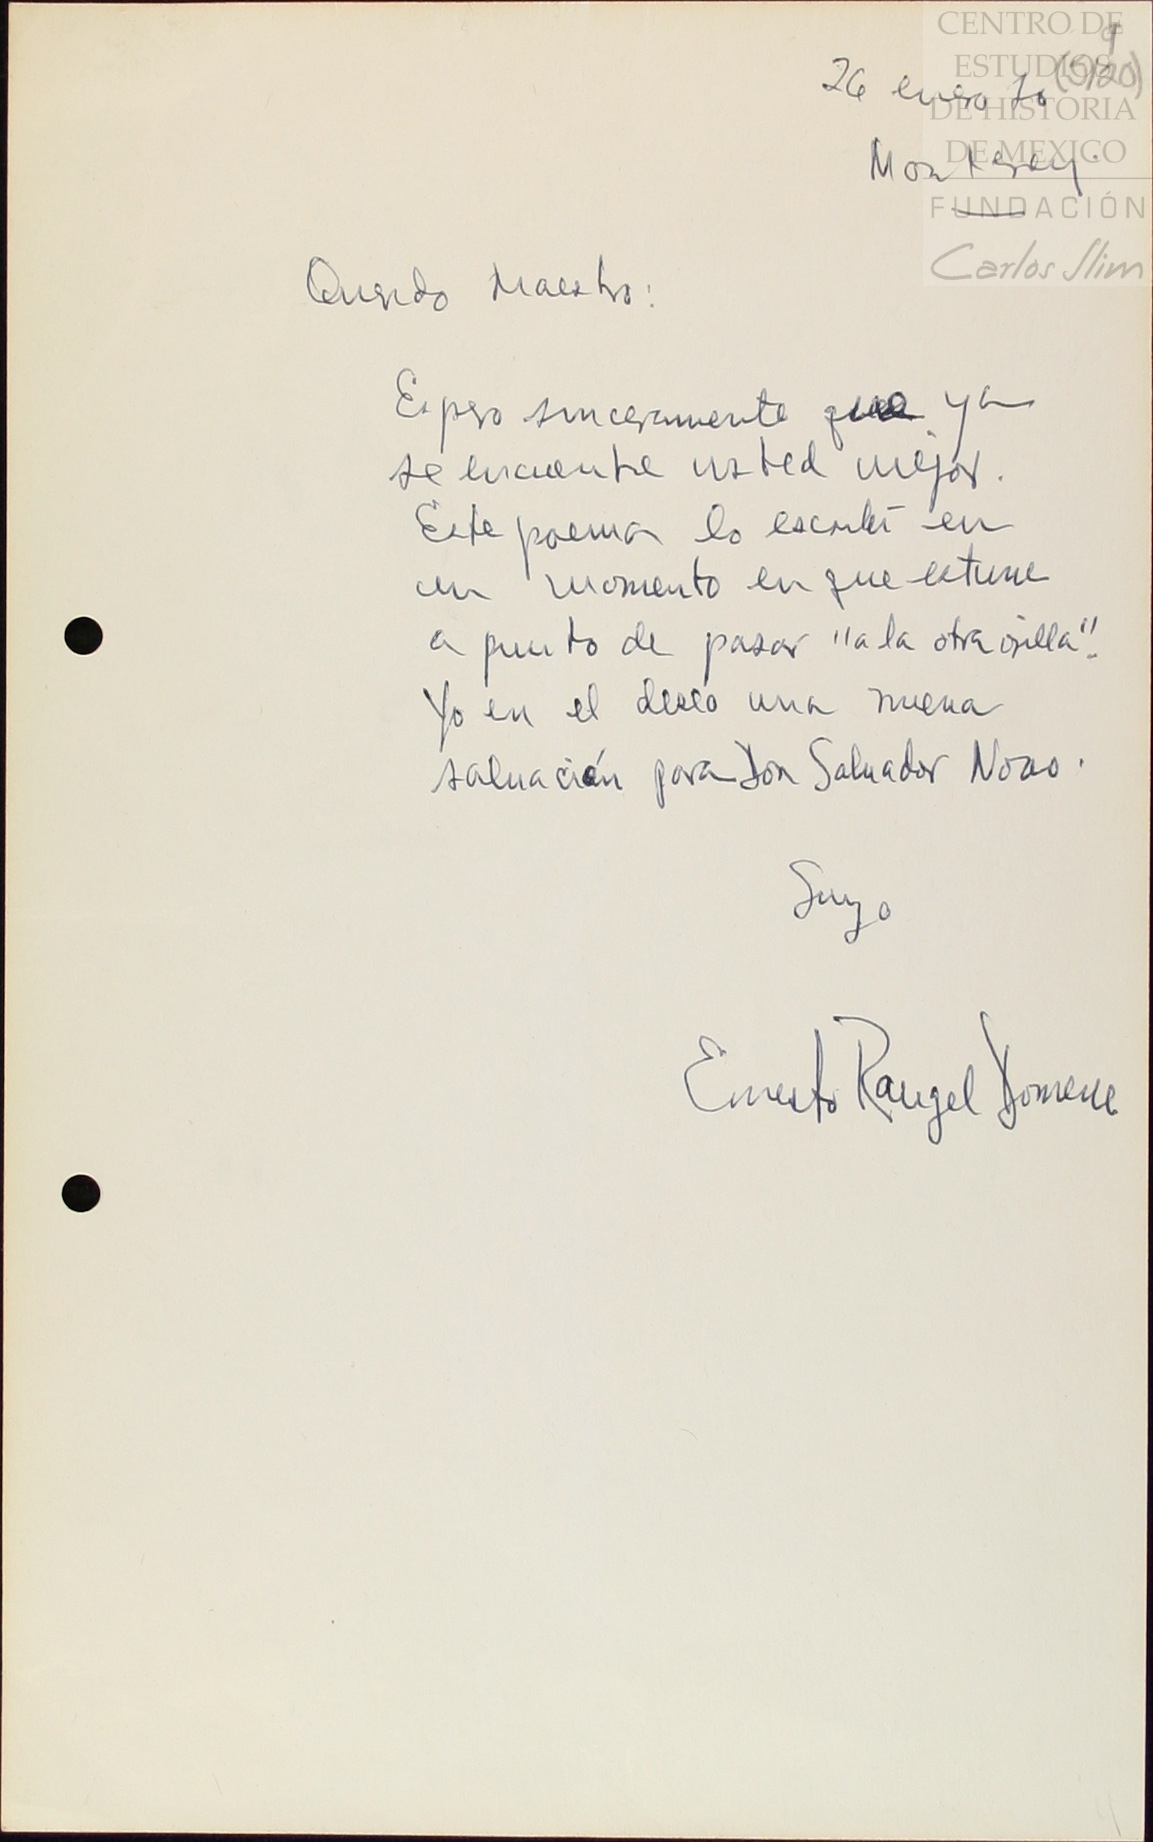 CENTRO DE
ESTUDIOS
DE HISTORIA
DE MEXICO
FUNDACIÓN
Carlos Slim
26 enero 70
Monterrey.
Querido Maestro:
Espero sinceramente que ya
se encuentre usted mejor.
Este poema lo escribí en
un momento en que estuve
a punto de pasar "a la otra orilla".
Yo en el deseo una nueva
salvación para Don Salvador Novo.
Suyo
Ernesto Rangel Domene